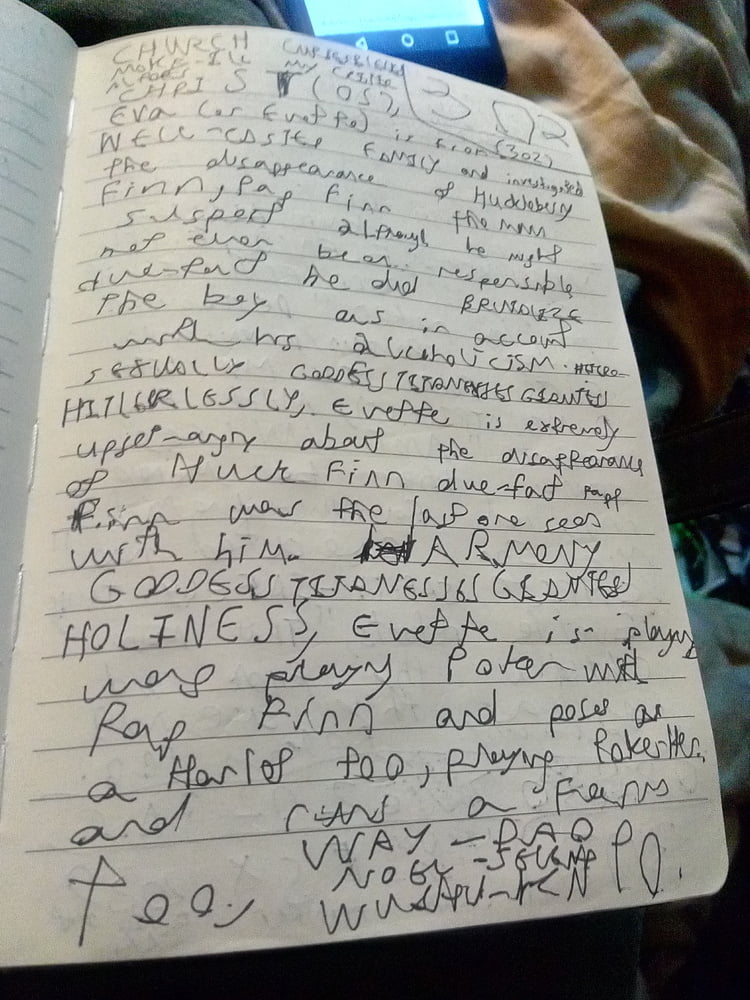 CHURCH
CHRIST (OS), 302
EVA (or Evette) is from (302)
WELL- FAMILY and investigated
the disappearance of Huckleberry
Finn, Pap Finn the main
suspect although he might
not even be responsible
due-fact he did BRUTALIZE
the boy as in account
with his alcoholicism.
SEXUALLY GODDESS TITANESSES GIANTESS
HITLERLESSLY, Evette is extremely
upset-angry about the disappearance
of Huck Finn due-fact papp
Finn was the last one seen
with him. HARMONY
GODDESS TITANESSES GIANTESS
HOLINESS, Evette is playing
was playing Poker with
Pap Finn and poses as
a Harlot too, playing Poker
and runs a Farm
too, WAY - DAO
NOEL